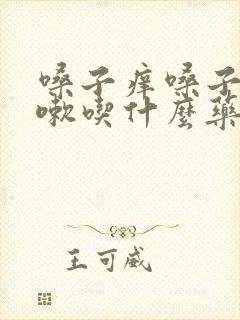 嗓子痒嗓子
嗽喫什麼藥
王可威